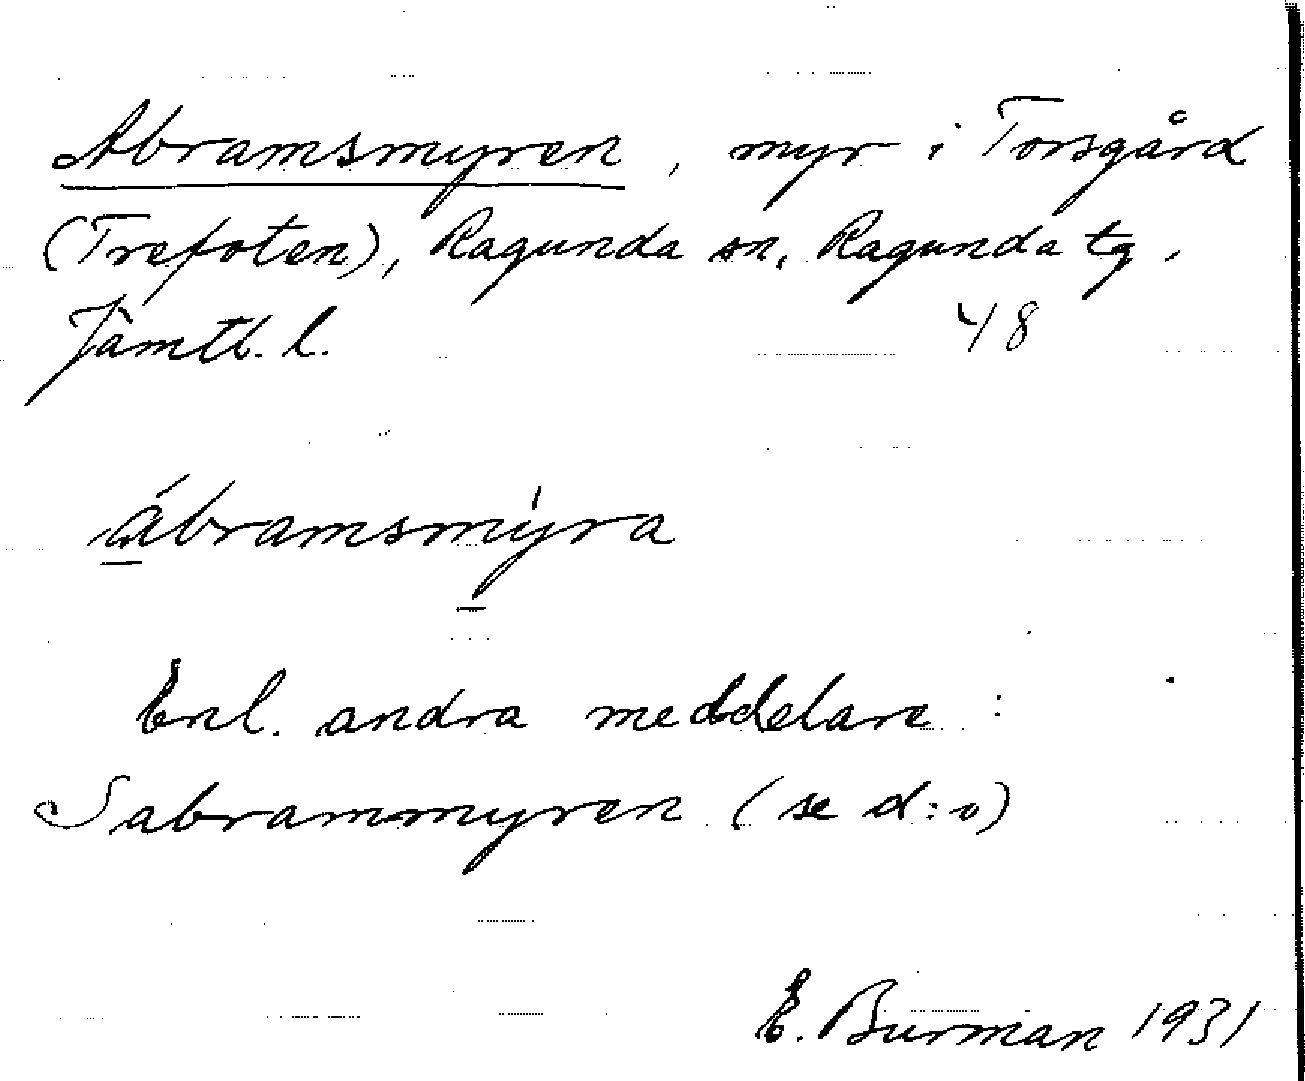 Abramsmyren, myr i Torsgård
(Trefoten), Ragunda sn, Ragunda tg,
Jämtl. l. 48
ábramsmýra
Enl. andra meddelare:
Sabrammyren (se d:o)
E. Burman 1931